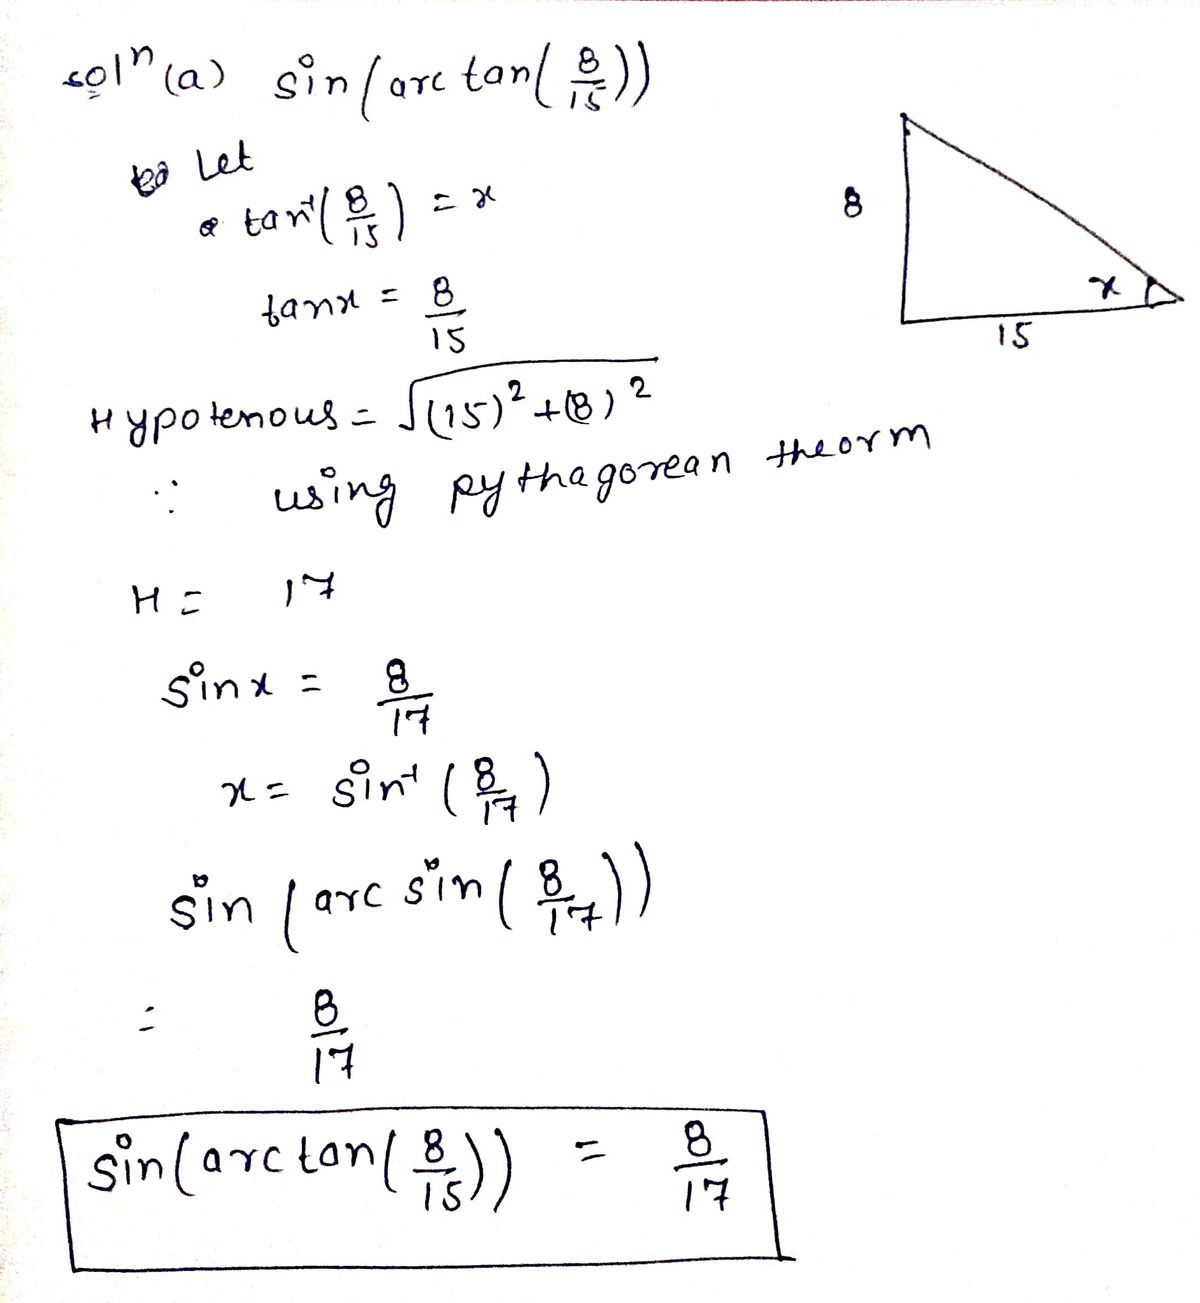 solⁿ (a) sin(arc tan(8/15))
Let
tan⁻¹(8/15) = x
8
tanx = 8/15
x
15
Hypotenous = √(15)² + (8)²
∵ using pythagorean theorm
H = 17
sinx = 8/17
x = sin⁻¹(8/17)
sin(arc sin(8/17))
= 8/17
sin(arc tan(8/15)) = 8/17